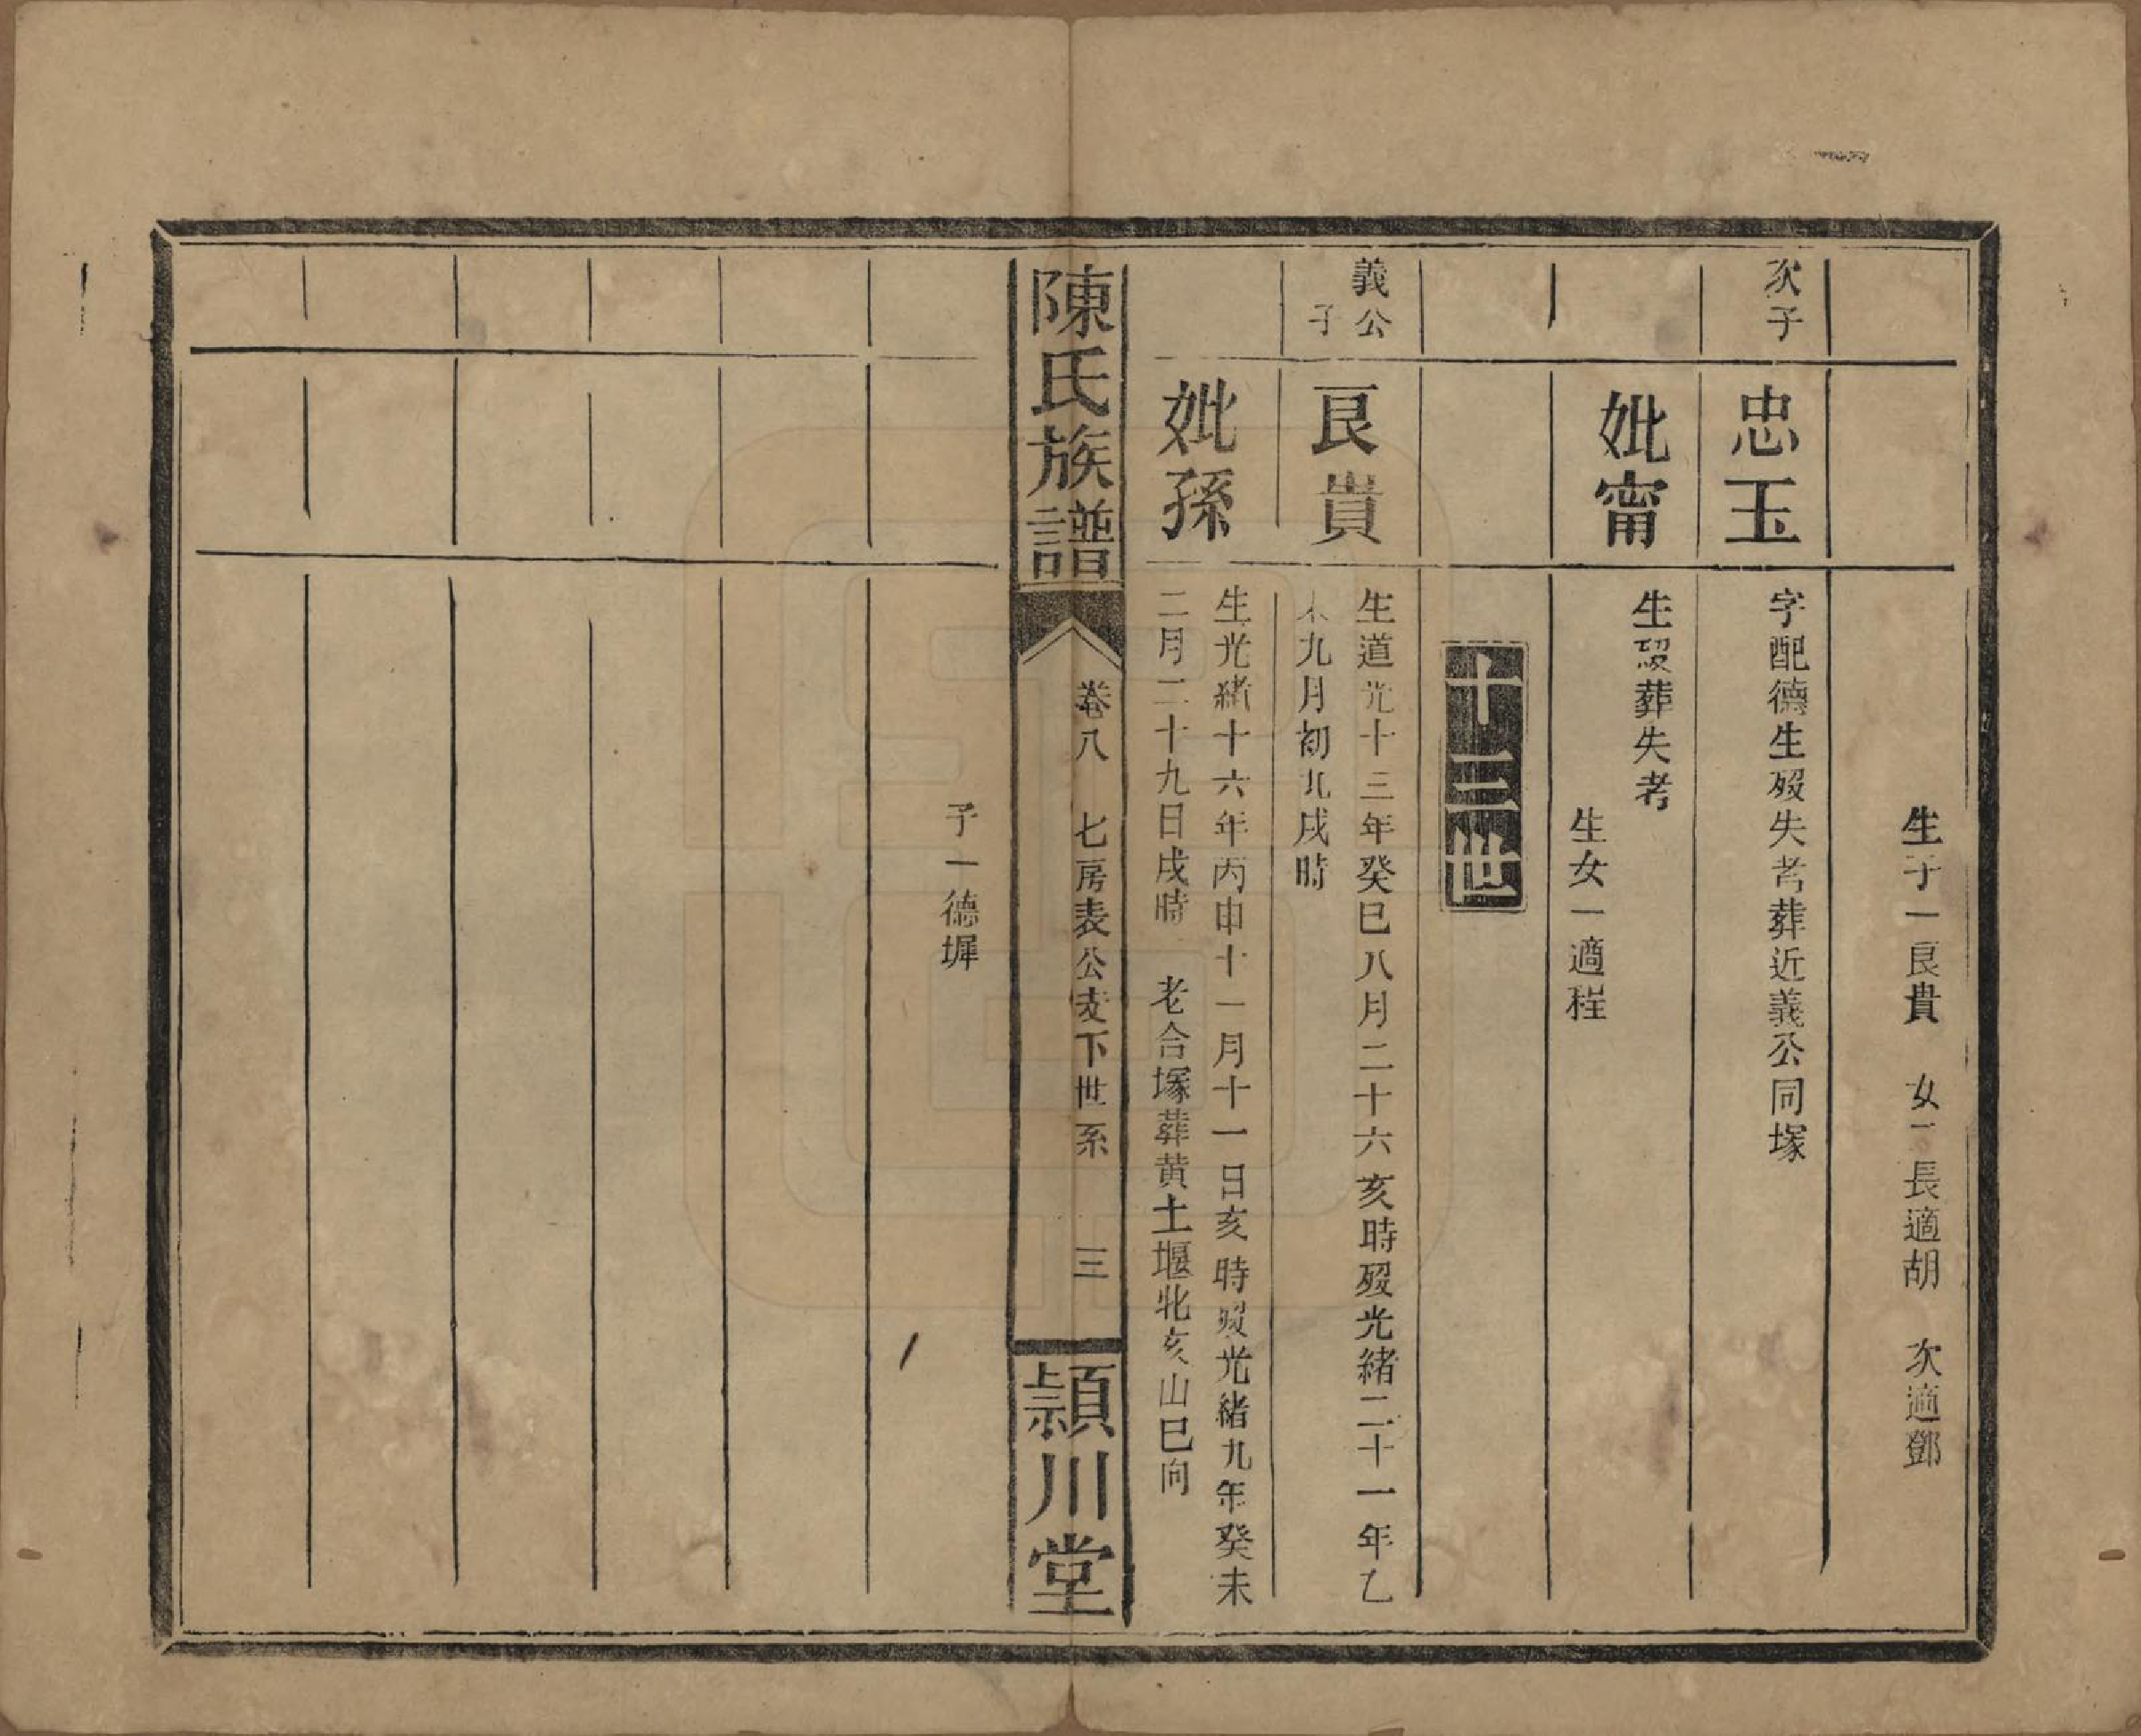 生子一良貴　女二長適胡　次適鄧
次子
忠玉
字配德生歿失考葬近義公同塚
妣甯
生歿葬失考
生女一適程
十三世
義公
子
良貴
生道光十三年癸巳八月二十六亥時歿光緒二十一年乙
未九月初九戌時
妣孫
生光緒十六年丙申十一月十一日亥時歿光緒九年癸未
二月二十九日戌時　老合塚葬黃土堰北亥山巳向
陳氏族譜
卷八　七房表公支下世系　三
潁川堂
子一德墀